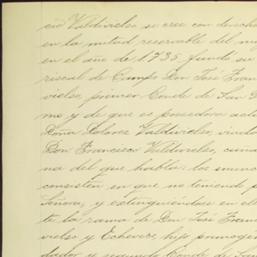 cio Valdivielso se cree con derecho
en la mitad reservable del m
en el año de 1735 fundó su
riscal de Campo Don José Fran
vielso primer Conde de San P
mo y de que es poseedora actu
Doña Dolores Valdivielso, viuda
Don Francisco Valdivielso, cuña
na del que habla: los
consisten en que no teniendo
Señora, y extinguiéndose en el
te la rama de Don José Franc
vielso y Echevers, hijo primogé
dador y segundo Conde de San